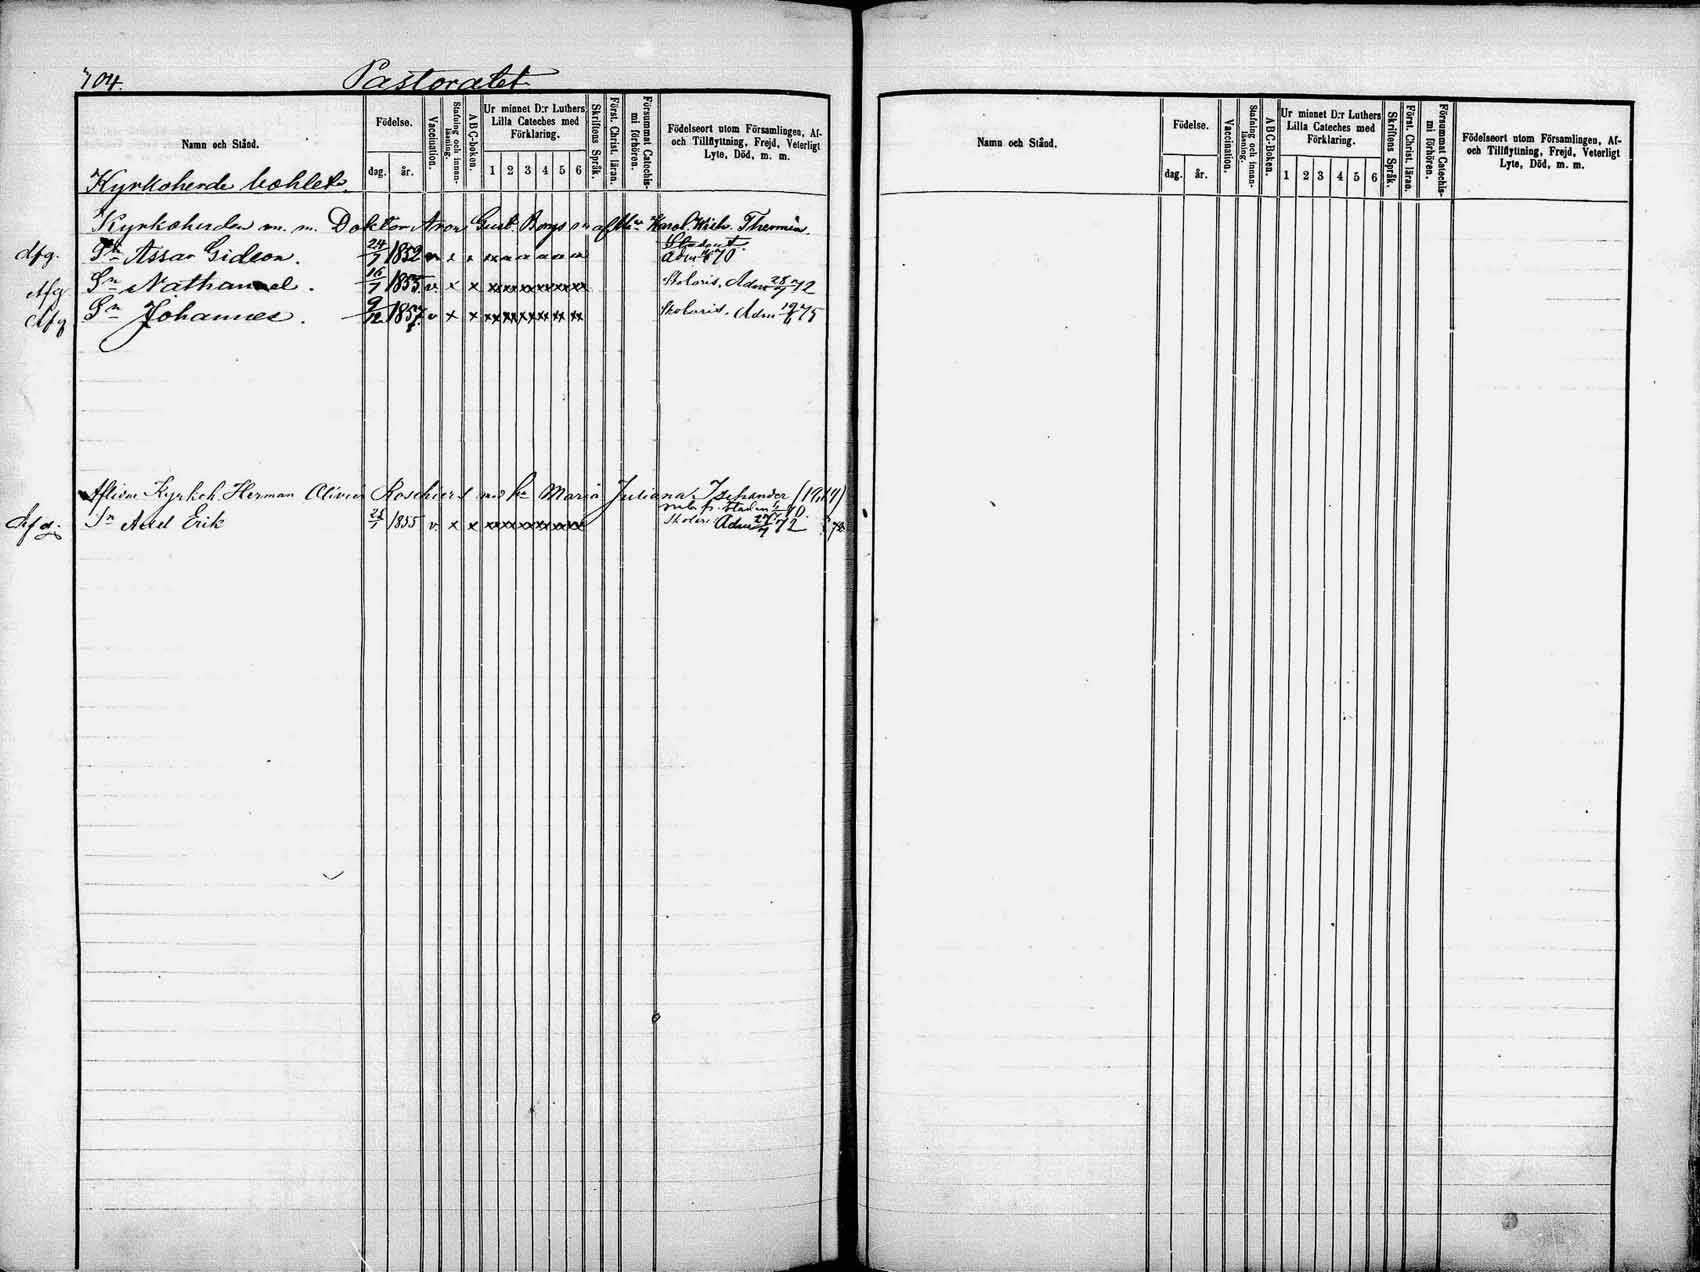 704. Pastoratet
Namn och Stånd.
Födelse.
dag. år.
Vaccination.
Stafning och innan-läsning.
ABC-boken.
Ur minnet D:r Luthers Lilla Cateches med Förklaring.
1 2 3 4 5 6
Skriftens Språk.
Först. Christ. läran.
Försummat Catechis-mi förhören.
Födelseort utom Församlingen, Af- och Tillflyttning, Frejd, Veterligt Lyte, Död, m. m.
Kyrkoherde bohlet.
Kyrkoherden m. m. Doktor Aron Gust. Borg m Karol. Wilh. Thermén
Sn Assar Gideon. 24/7 1852 Student. Adm 70
Sn Nathanael. 16/7 1855 v. x x xx xx xx xx xx xx Skolaris. Adm 28/7 72
Sn Johannes. 9/12 1857 v x x xx xx xx xx xx xx Skolaris. Adm 19/6 75
Kyrkoh. Herman Olivier Roschier med Maria Juliana
Sn Axel Erik 25/1 1855 v. x x xx xx xx xx xx xx Adm 27/7 72
Namn och Stånd.
Födelse.
dag. år.
Vaccination.
Stafning och innan-läsning.
ABC-Boken.
Ur minnet D:r Luthers Lilla Cateches med Förklaring.
1 2 3 4 5 6
Skriftens Språk.
Först. Christ. läran.
Försummat Catechis-mi förhören.
Födelseort utom Församlingen, Af- och Tillflyttning, Frejd, Veterligt Lyte, Död, m. m.